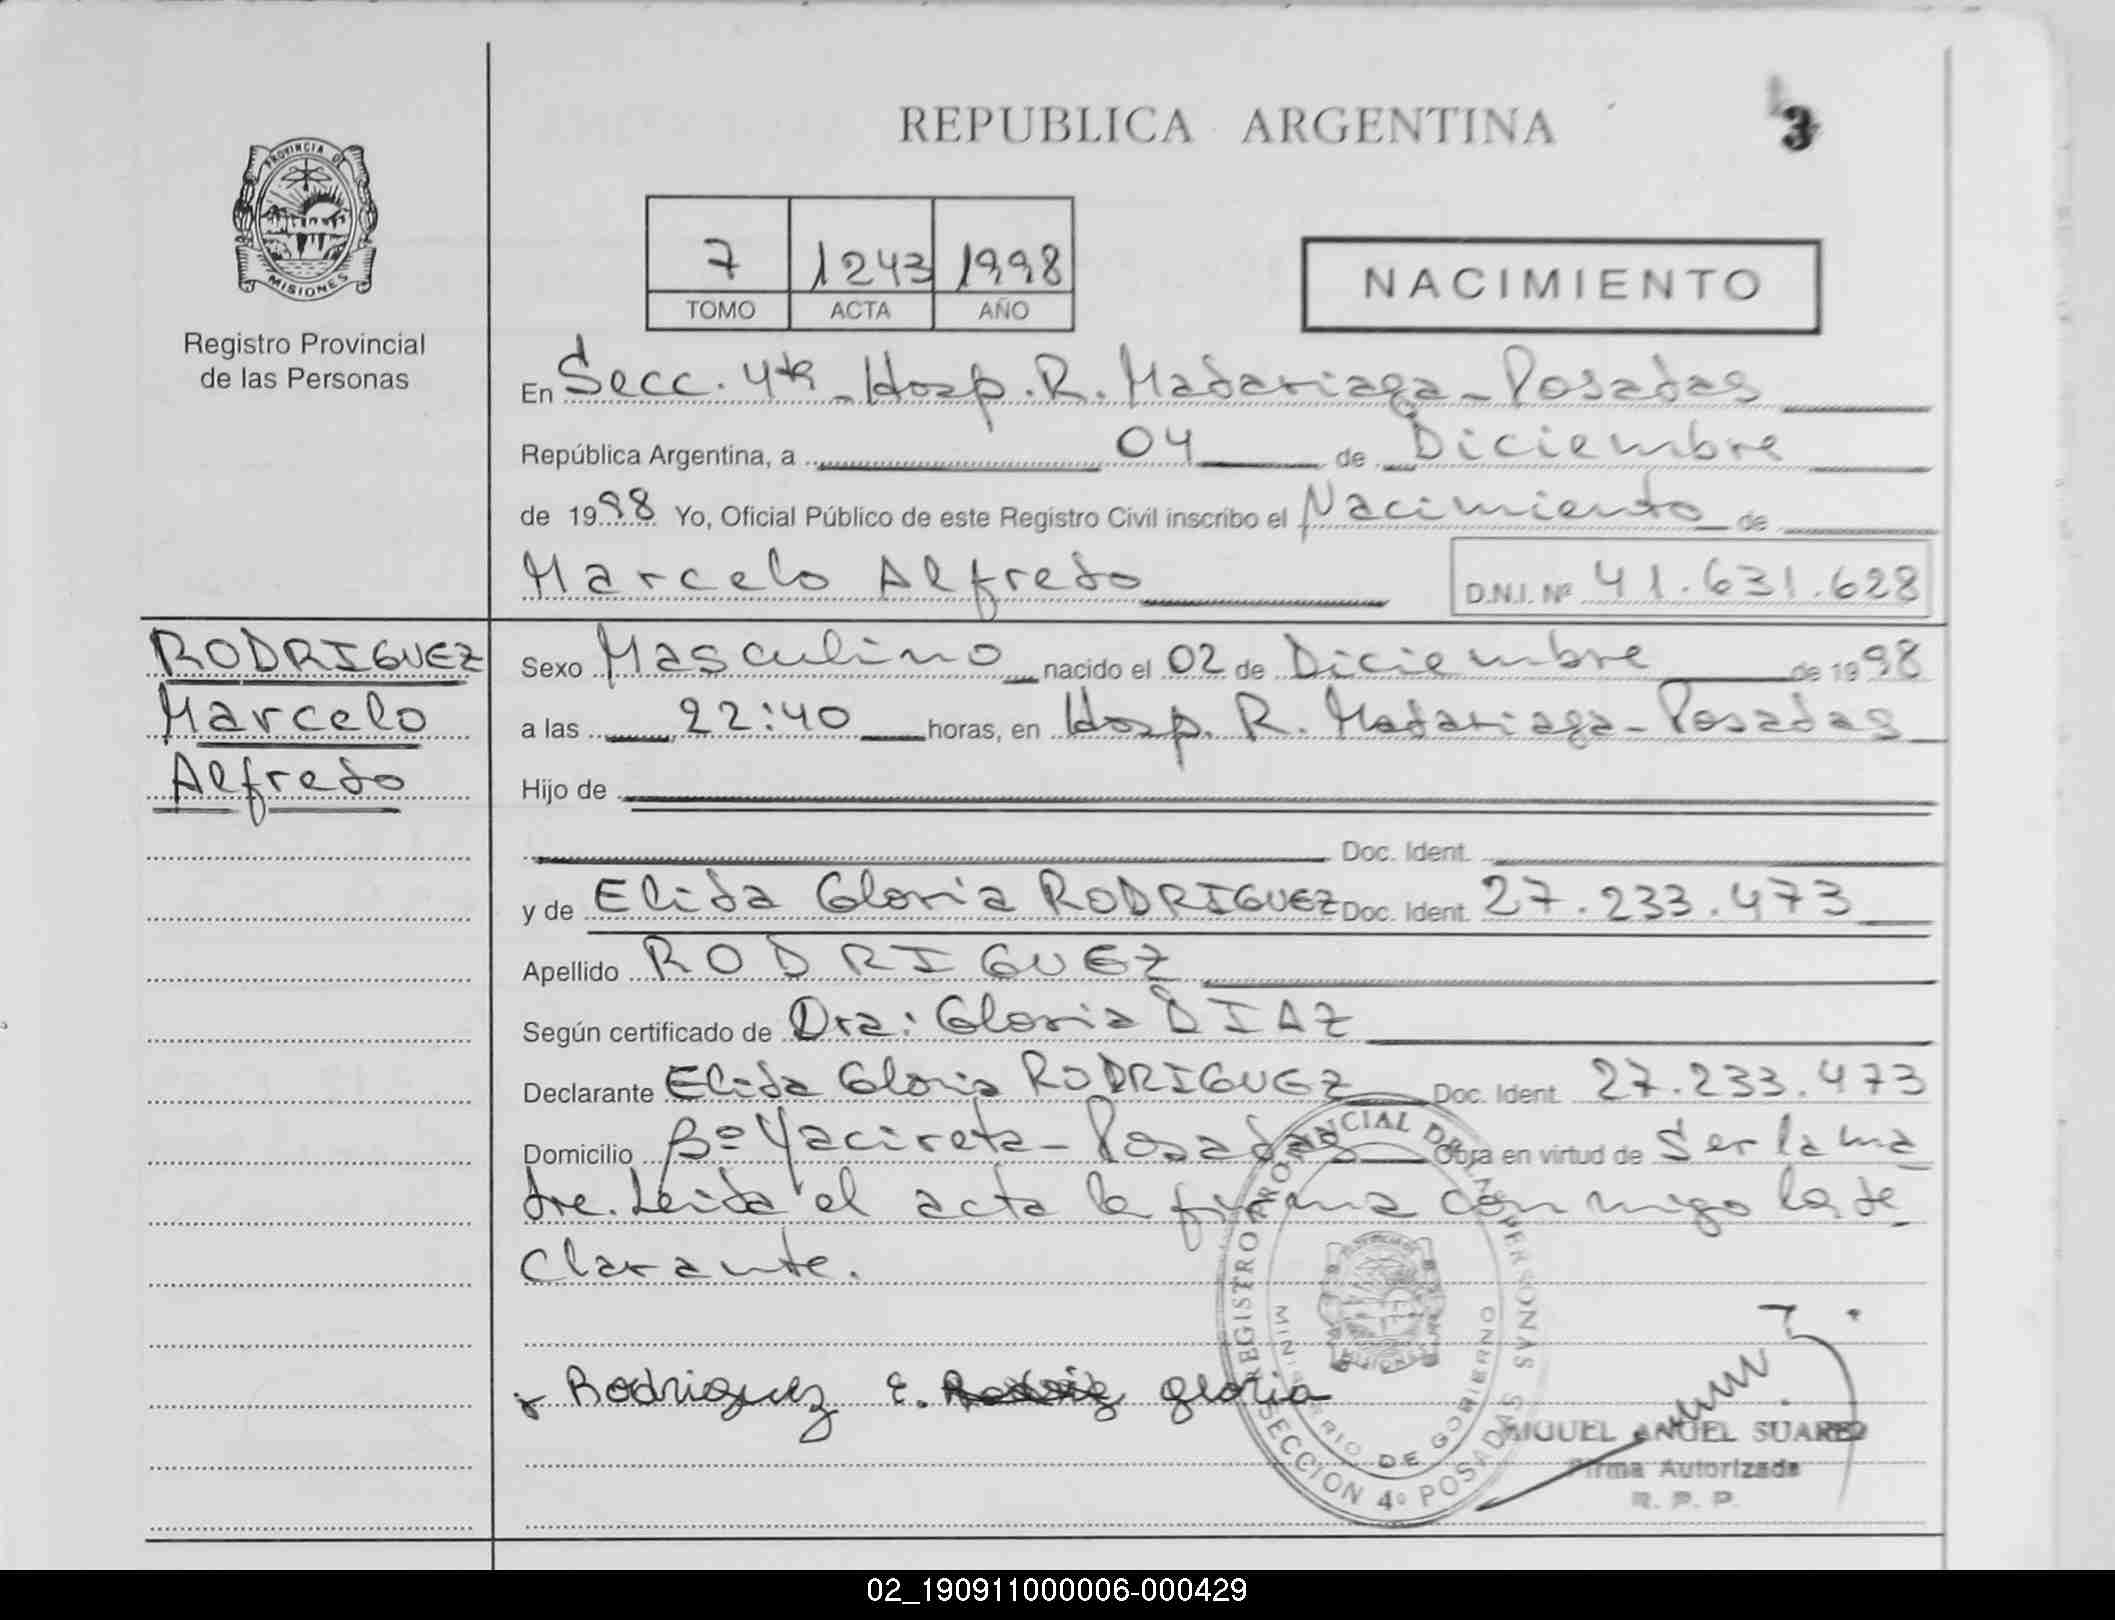 REPUBLICA ARGENTINA
3
PROVINCIA DE
MISIONES
Registro Provincial
de las Personas
7 1243 1998
TOMO ACTA AÑO
NACIMIENTO
En Secc. 4ta - Hosp. R. Madariaga - Posadas
República Argentina, a 04 de Diciembre
de 1998 Yo, Oficial Público de este Registro Civil inscribo el Nacimiento de
Marcelo Alfredo D.N.I. Nº 41.631.628
RODRIGUEZ
Marcelo
Alfredo
Sexo Masculino nacido el 02 de Diciembre de 1998
a las 22:40 horas, en Hosp. R. Madariaga - Posadas
Hijo de
Doc. Ident.
y de Elida Gloria RODRIGUEZ Doc. Ident. 27.233.473
Apellido RODRIGUEZ
Según certificado de Dra: Gloria DIAZ
Declarante Elida Gloria RODRIGUEZ Doc. Ident. 27.233.473
Domicilio Bº Yacireta - Posadas Obra en virtud de Ser la ma
dre. Leida el acta la firma conmigo la de
clarante.
Rodriguez E. gloria
REGISTRO PROVINCIAL DE LAS PERSONAS
MINISTERIO DE GOBIERNO
SECCION 4º POSADAS
MIGUEL ANGEL SUAREZ
Firma Autorizada
R. P. P.
02_190911000006-000429